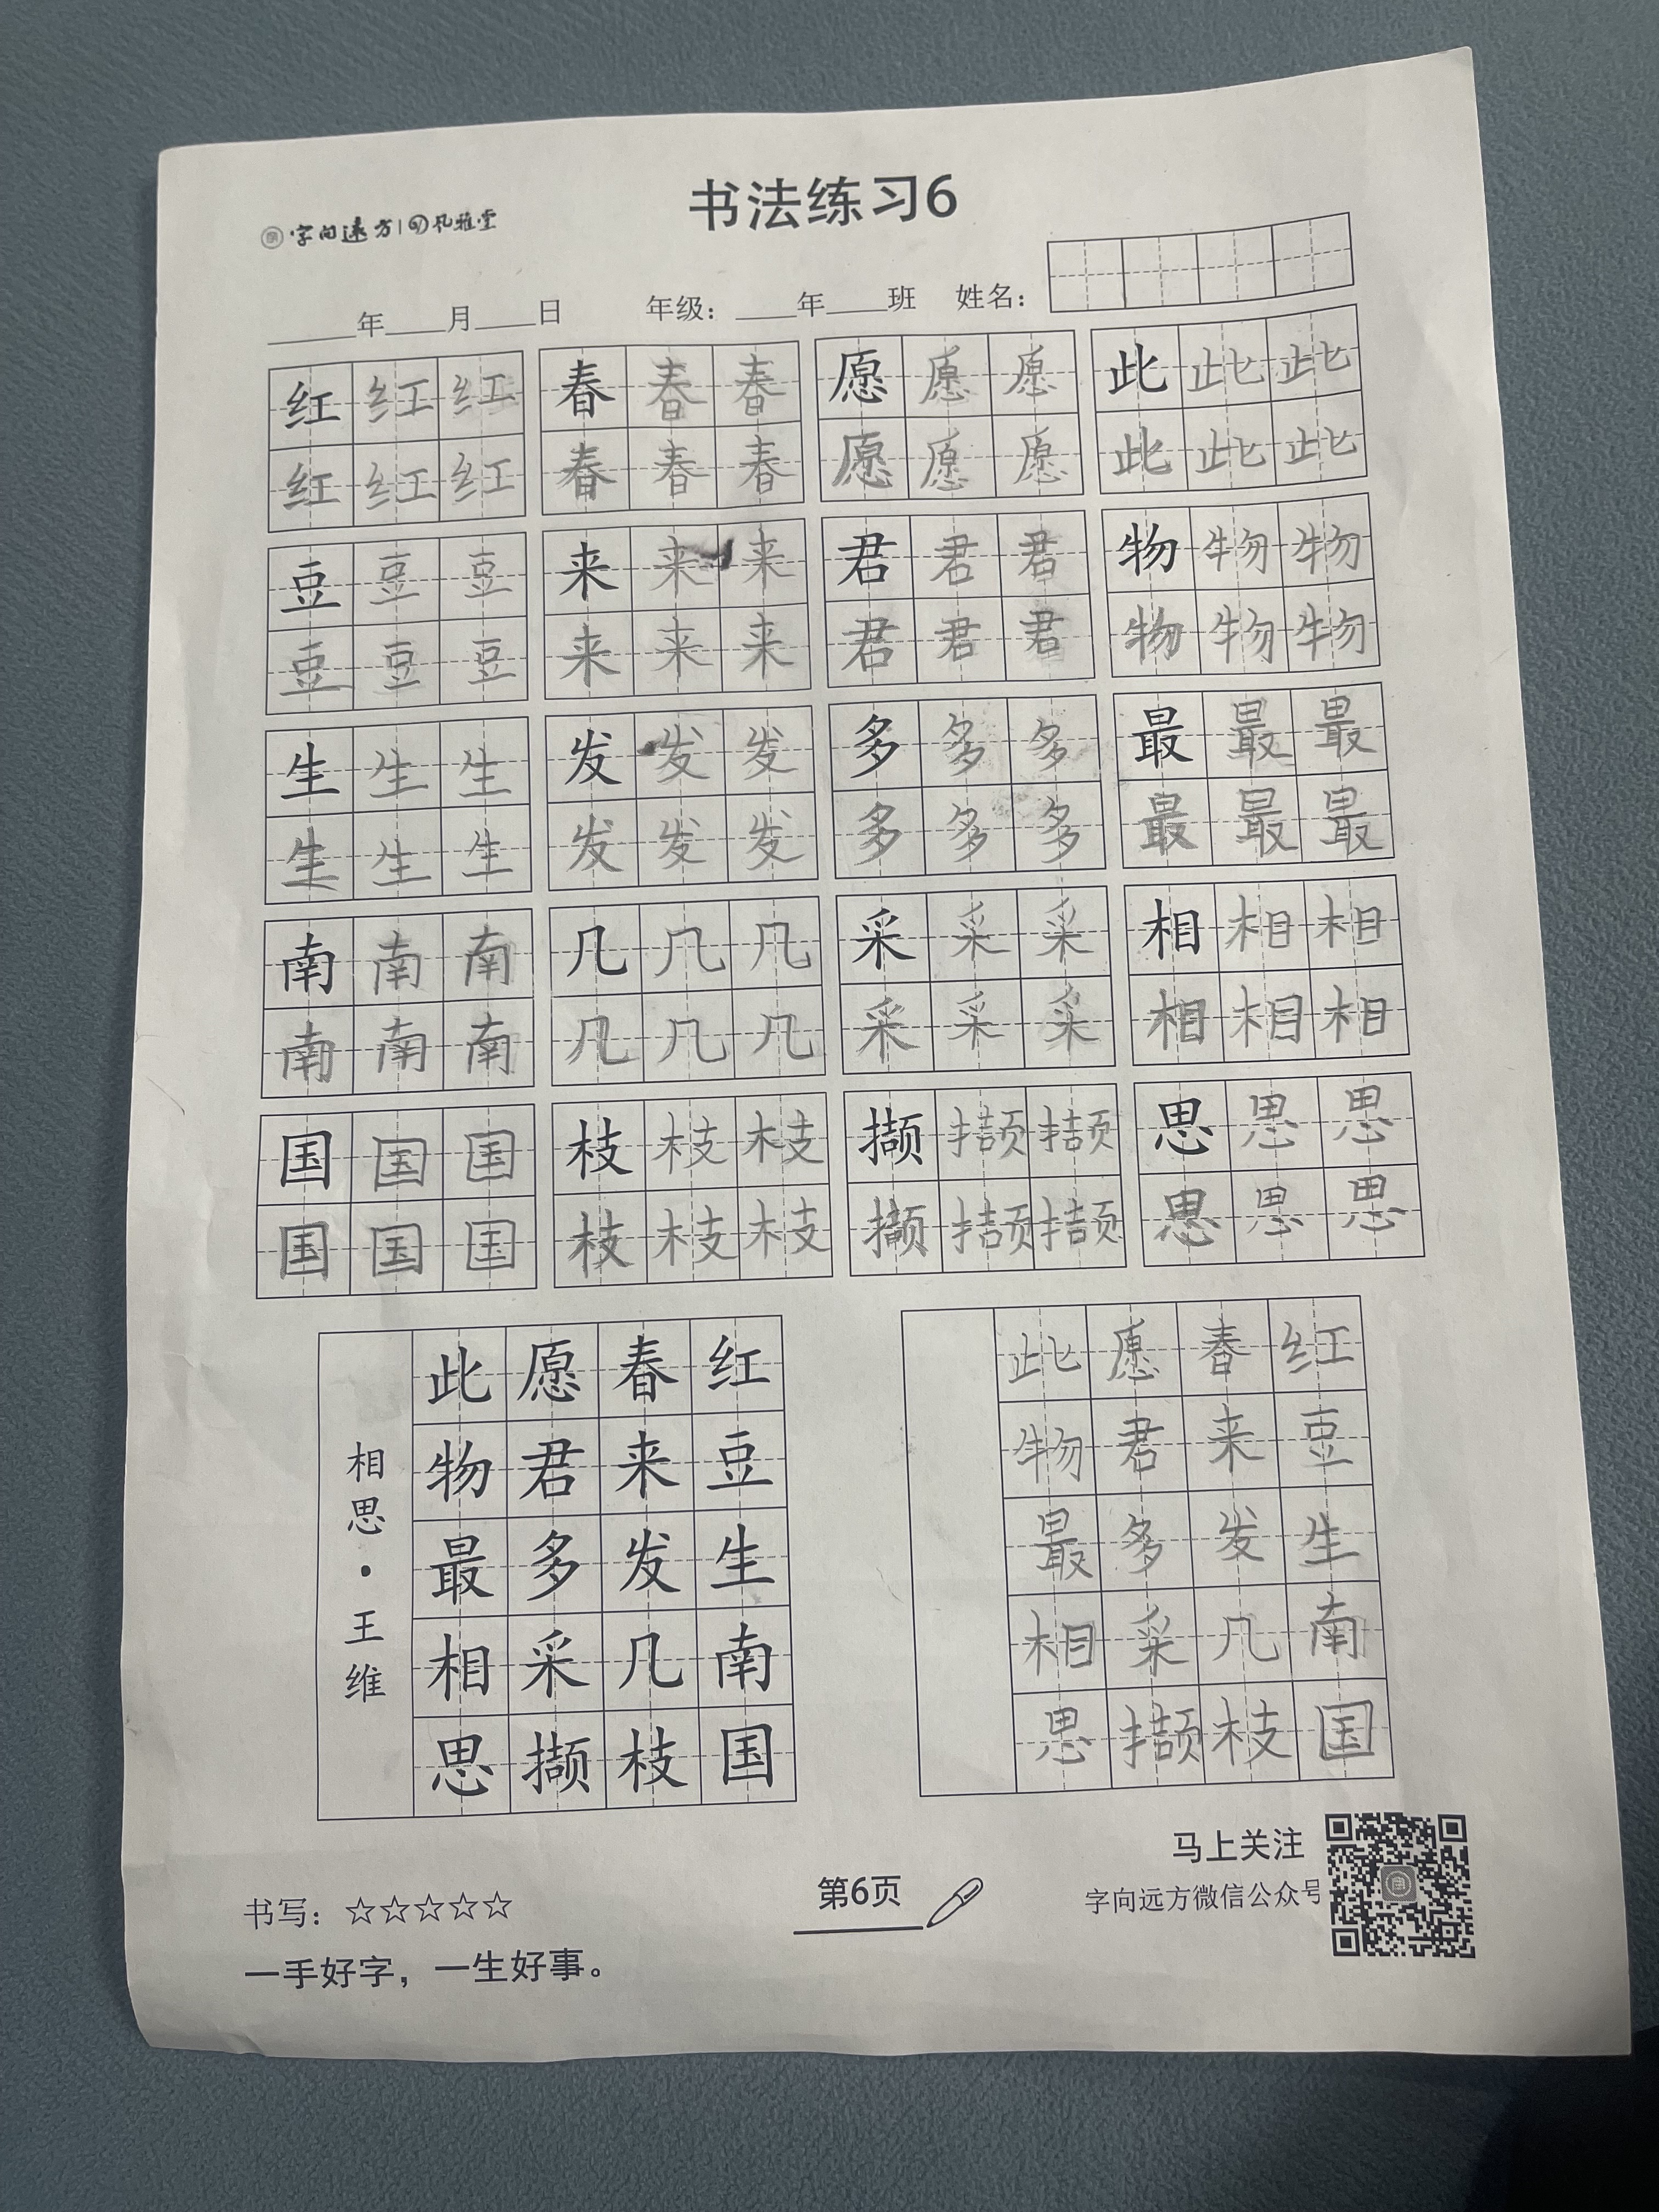 书法练习6
字向远方 | 孔雅堂
年 月 日 年级: 年 班 姓名:
红 红 红 春 春 春 愿 愿 愿 此 此 此
红 红 红 春 春 春 愿 愿 愿 此 此 此
豆 豆 豆 来 来 来 君 君 君 物 物 物
豆 豆 豆 来 来 来 君 君 君 物 物 物
生 生 生 发 发 发 多 多 多 最 最 最
生 生 生 发 发 发 多 多 多 最 最 最
南 南 南 几 几 几 采 采 采 相 相 相
南 南 南 几 几 几 采 采 采 相 相 相
国 国 国 枝 枝 枝 撷 撷 撷 思 思 思
国 国 国 枝 枝 枝 撷 撷 撷 思 思 思
红豆生南国
春来发几枝
愿君多采撷
此物最相思
相思·王维
红豆生南国
春来发几枝
愿君多采撷
此物最相思
书写: ☆☆☆☆☆
一手好字，一生好事。
第6页
马上关注
字向远方微信公众号